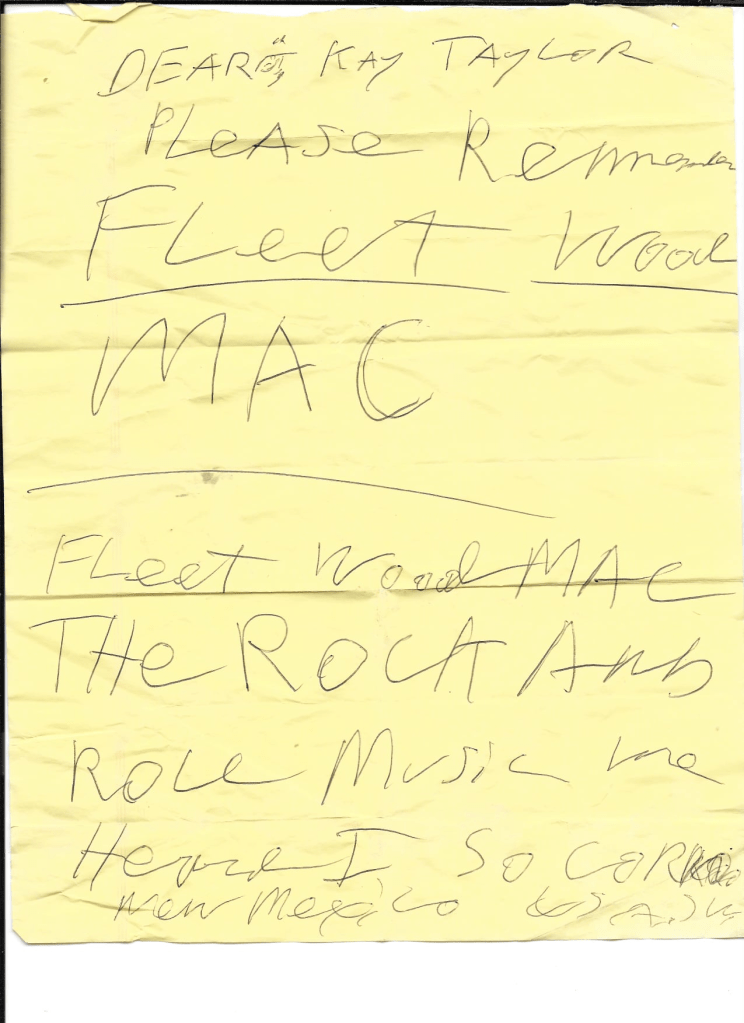 DEAR KAY TAYLOR
PLeASe Remmember
FLeet Wood
MAC
FLeet Wood MAC
THe ROCK AND
ROLL MuSiC We
Heard I SOCORRO
New Mexico USA